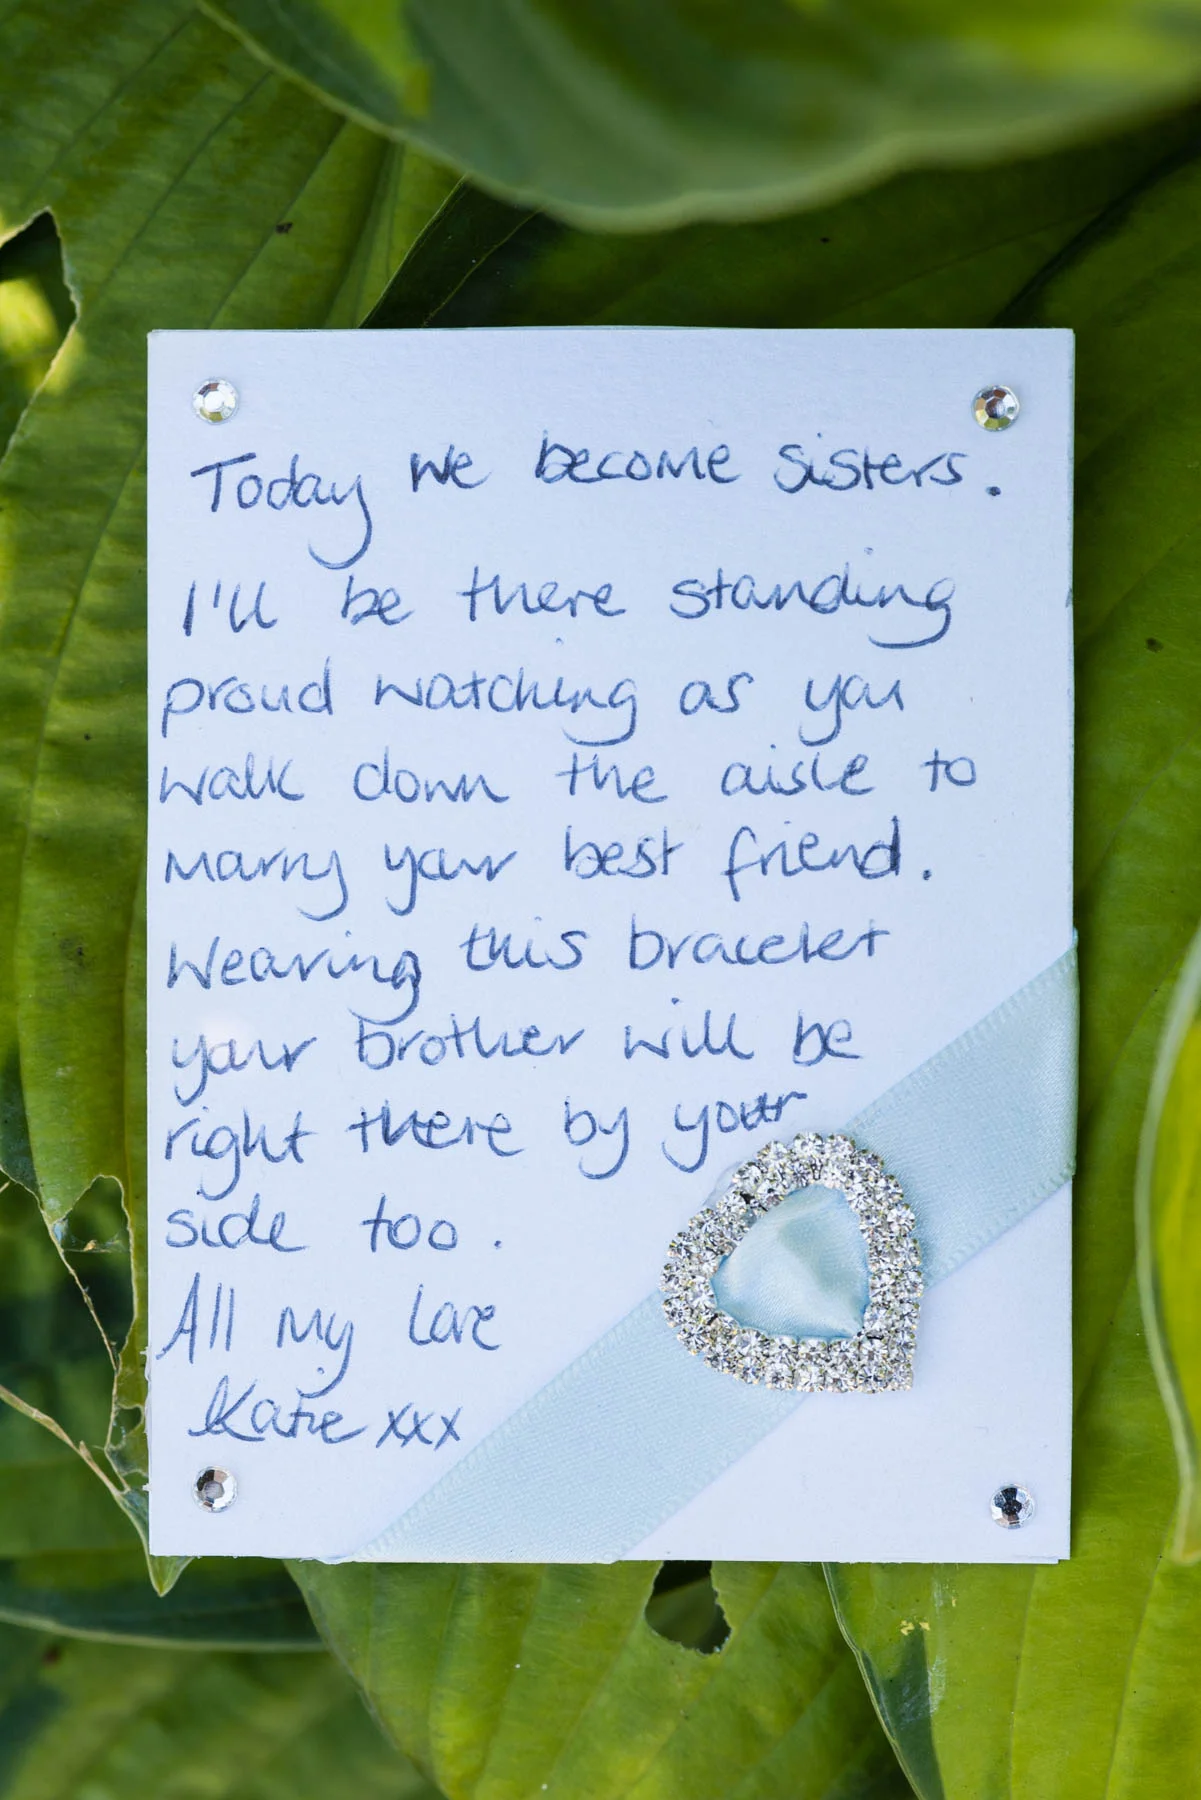 Today we become sisters.
I'll be there standing
proud watching as you
walk down the aisle to
marry your best friend.
Wearing this bracelet
your brother will be
right there by your
side too.
All my love
Katie xxx